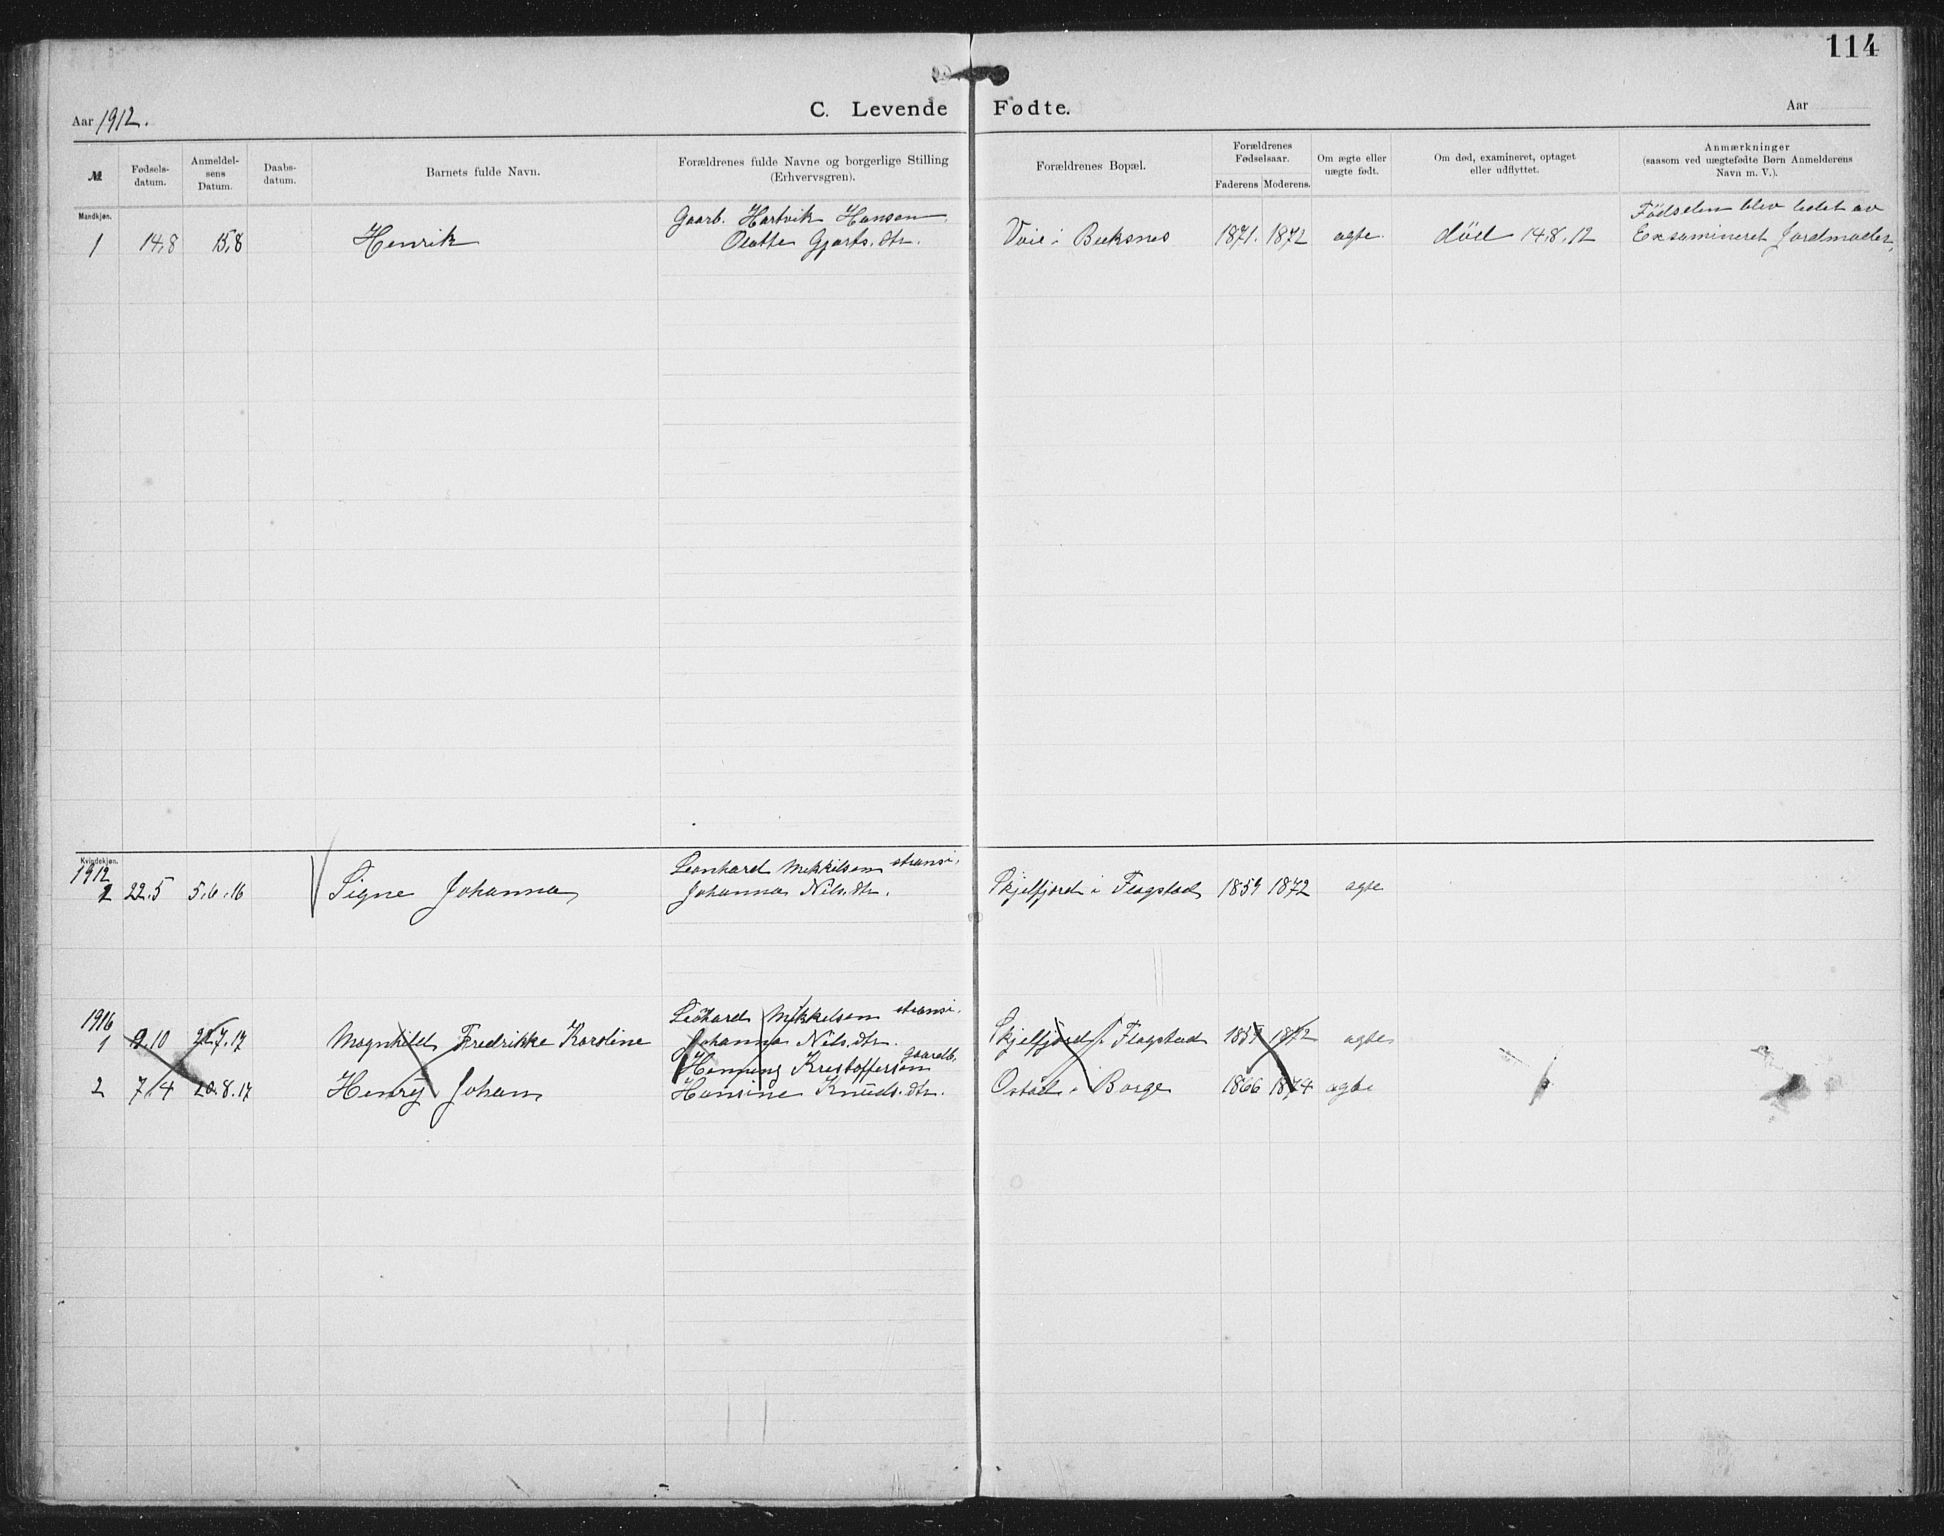 114
Aar 1912.
C. Levende Fødte.
Aar
№
Fødsels-
datum.
Anmeldel-
sens
Datum.
Daabs-
datum.
Barnets fulde Navn.
Forældrenes fulde Navne og borgerlige Stilling
(Erhvervsgren).
Forældrenes Bopæl.
Forældrenes
Fødselsaar.
Faderens Moderens.
Om ægte eller
uægte født.
Om død, examineret, optaget
eller udflyttet.
Anmærkninger
(saasom ved uægtefødte Børn Anmelderens
Navn m. V.).
Mandkjøn.
Gaarb. Hartvik Hansen
Fødselen blev ledet av
1 14.8 15.8 Henrik Olaffa Gjærts.dtr. Voie i Buksnes 1871. 1872 ægte død 14.8.12 Examineret Jordmoder.
Kvindekjøn.
1912 Leonhard Mikkelsen stransi.
1 22.5 5.6.16 Signe Johanna Johanna Nils.dtr. Skjelfjord i Flagstad 1859 1872 ægte
1916 Leohard Mikkelsen stransi.
1 9.10 22.7.17 Magnhild Fredrikke Karoline Johanna Nils.dtr. Skjelfjord i Flagstad 1859 1872 ægte
Henning Kristoffersen gaardb.
2 7.4 20.8.17 Henry Johan Hansine Knuds.dtr. Ostad i Borge 1866 1874 ægte